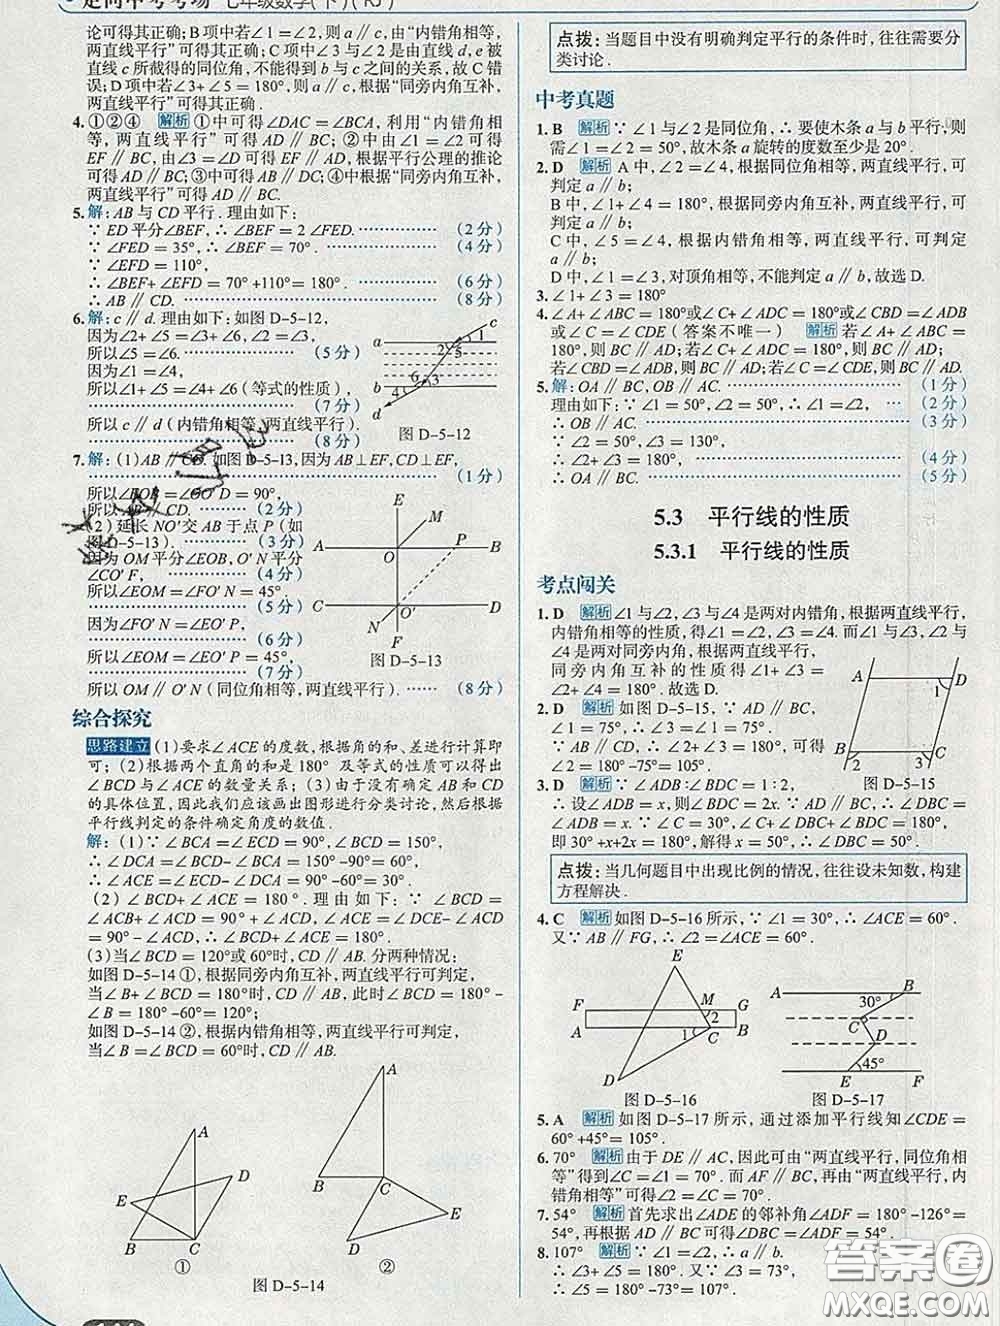 走向中考考场 七年级数学(下)(RJ)
论可得其正确;B项中若∠1=∠2,则a∥b,根据“内错角相等,
两直线平行”可得其正确;C项中若∠4=∠5是由直线d,e被
直线c所截得的同位角,不能得到b与c之间的关系,故C错
误;D项中若∠3+∠5=180°,则a∥c,根据“同旁内角互补,
两直线平行”可得其正确.
4.①②④ 解析 ①中可得∠DAC=∠BCA,利用“内错角相
等,两直线平行”可得AD∥BC;②中由∠2=∠C可得
EF∥BC,由∠3=∠D可得EF∥AD,根据平行公理的推论
可得AD∥BC;③中可得AB∥DC;④中根据“同旁内角互补,
两直线平行”可得AD∥BC.
5.解:AB与CD平行.理由如下:
∵ED平分∠BEF,∴∠BEF=2∠FED. (2分)
∵∠FED=35°,∴∠BEF=70°. (4分)
∵∠EFD=110°,
∴∠BEF+∠EFD=70°+110°=180°. (6分)
∴AB∥CD. (8分)
6.解:c∥d.理由如下:如图D-5-12,
因为∠2+∠5=∠3+∠6,∠2=∠3,
所以∠5=∠6. (5分)
因为∠1=∠4,
所以∠1+∠5=∠4+∠6(等式的性质).
(7分)
所以c∥d(内错角相等,两直线平行).
(8分)
a
b
c
d
1
2
5
6
3
4
图D-5-12
7.解:(1)AB∥CD.如图D-5-13,因为AB⊥EF,CD⊥EF,
(1分)
所以∠EOB=∠OO′D=90°,
所以AB∥CD. (2分)
(2)延长NO′交AB于点P(如
图D-5-13). (3分)
因为OM平分∠EOB,O′N平分
∠CO′F, (4分)
所以∠EOM=∠FO′N=45°.
(5分)
因为∠FO′N=∠EO′P,
(6分)
所以∠EOM=∠EO′P=45°,
(7分)
所以OM∥O′N(同位角相等,两直线平行). (8分)
E
M
A
O
P
B
C
O′
D
N
F
图D-5-13
综合探究
思路建立 (1)要求∠ACE的度数,根据角的和、差进行计算即
可;(2)根据两个直角的和是180°及等式的性质可以得出
∠BCD与∠ACE的数量关系;(3)由于没有确定AB和CD
的具体位置,因此我们应该画出图形进行分类讨论,然后根据
平行线判定的条件确定角度的数值.
解:(1)∵∠BCA=∠ECD=90°,∠BCD=150°,
∴∠DCA=∠BCD-∠BCA=150°-90°=60°,
∴∠ACE=∠ECD-∠DCA=90°-60°=30°.
(2)∠BCD+∠ACE=180°.理由如下:∵∠BCD=
∠ACB+∠ACD=90°+∠ACD,∠ACE=∠DCE-∠ACD
=90°-∠ACD,∴∠BCD+∠ACE=180°.
(3)当∠BCD=120°或60°时,CD∥AB.分两种情况:
如图D-5-14①,根据同旁内角互补,两直线平行可判定,
当∠B+∠BCD=180°时,CD∥AB,此时∠BCD=180°-
∠B=180°-60°=120°;
如图D-5-14②,根据内错角相等,两直线平行可判定,
当∠B=∠BCD=60°时,CD∥AB.
A
D
E
B
C
①
A
B
C
E
D
②
图D-5-14
点拨:当题目中没有明确判定平行的条件时,往往需要分
类讨论.
中考真题
1.B 解析 ∵∠1与∠2是同位角,∴要使木条a与b平行,则
需∠1=∠2=50°,故木条a旋转的度数至少是20°.
2.D 解析 A中,∠2=∠4,根据同位角相等,两直线平行,可
判定a∥b;
B中,∠1+∠4=180°,根据同旁内角互补,两直线平行,可
判定a∥b;
C中,∠5=∠4,根据内错角相等,两直线平行,可判定
a∥b;
D中,∠1=∠3,对顶角相等,不能判定a∥b,故选D.
3.∠1+∠3=180°
4.∠A+∠ABC=180°或∠C+∠ADC=180°或∠CBD=∠ADB
或∠C=∠CDE(答案不唯一) 解析 若∠A+∠ABC=
180°,则BC∥AD;若∠C+∠ADC=180°,则BC∥AD;若
∠CBD=∠ADB,则BC∥AD;若∠C=∠CDE,则BC∥AD.
5.解:OA∥BC,OB∥AC. (1分)
理由如下:∵∠1=50°,∠2=50°,∴∠1=∠2, (2分)
∴OB∥AC. (3分)
∵∠2=50°,∠3=130°,
∴∠2+∠3=180°, (4分)
∴OA∥BC. (5分)
5.3 平行线的性质
5.3.1 平行线的性质
考点闯关
1.D 解析 ∠1与∠2,∠3与∠4是两对内错角,根据两直线平行,
内错角相等的性质,得∠1=∠2,∠3=∠4.而∠1与∠3,∠2与
∠4是两对同旁内角,根据两直线平行,
同旁内角互补的性质得∠1+∠3=
∠2+∠4=180°.故选D.
2.D 解析 如图D-5-15,∵AD∥BC,
∠1=75°,∴∠3=∠1=75°.
∵AB∥CD,∴∠2=180°-∠3=
180°-75°=105°.
A
D
1
B
2
3
C
图D-5-15
3.D 解析 ∵∠ADB:∠BDC=1:2,
∴设∠ADB=x,则∠BDC=2x.∵AD∥BC,∴∠DBC=
∠ADB=x.∵∠C=30°,∠C+∠DBC+∠BDC=180°,
即30°+x+2x=180°,解得x=50°,∴∠DBC=50°.
点拨:当几何题目中出现比例的情况,往往设未知数,构建
方程解决.
4.C 解析 如图D-5-16所示,∵∠1=30°,∴∠ACE=60°.
又∵AB∥FG,∴∠2=∠ACE=60°.
E
F
M
G
2
A
1
C
B
D
图D-5-16
A
B
30°
C
D
45°
E
F
图D-5-17
5.A 解析 如图D-5-17所示,通过添加平行线知∠CDE=
60°+45°=105°.
6.70° 解析 由于DE∥AC,因此可由“两直线平行,同位角相
等”得到∠C=∠1=70°.而AF∥BC,再由“两直线平行,内
错角相等”可得∠2=∠C=70°.
7.54° 解析 首先求出∠ADE的邻补角∠ADF=180°-126°=
54°,再由BC∥AD可得∠DBC=∠ADF=54°.
8.107° 解析 ∵∠1=∠2,∴a∥b.
∴∠3+∠5=180°.又∵∠3=73°,
∴∠5=180°-73°=107°.
答案圈
MXQE.COM